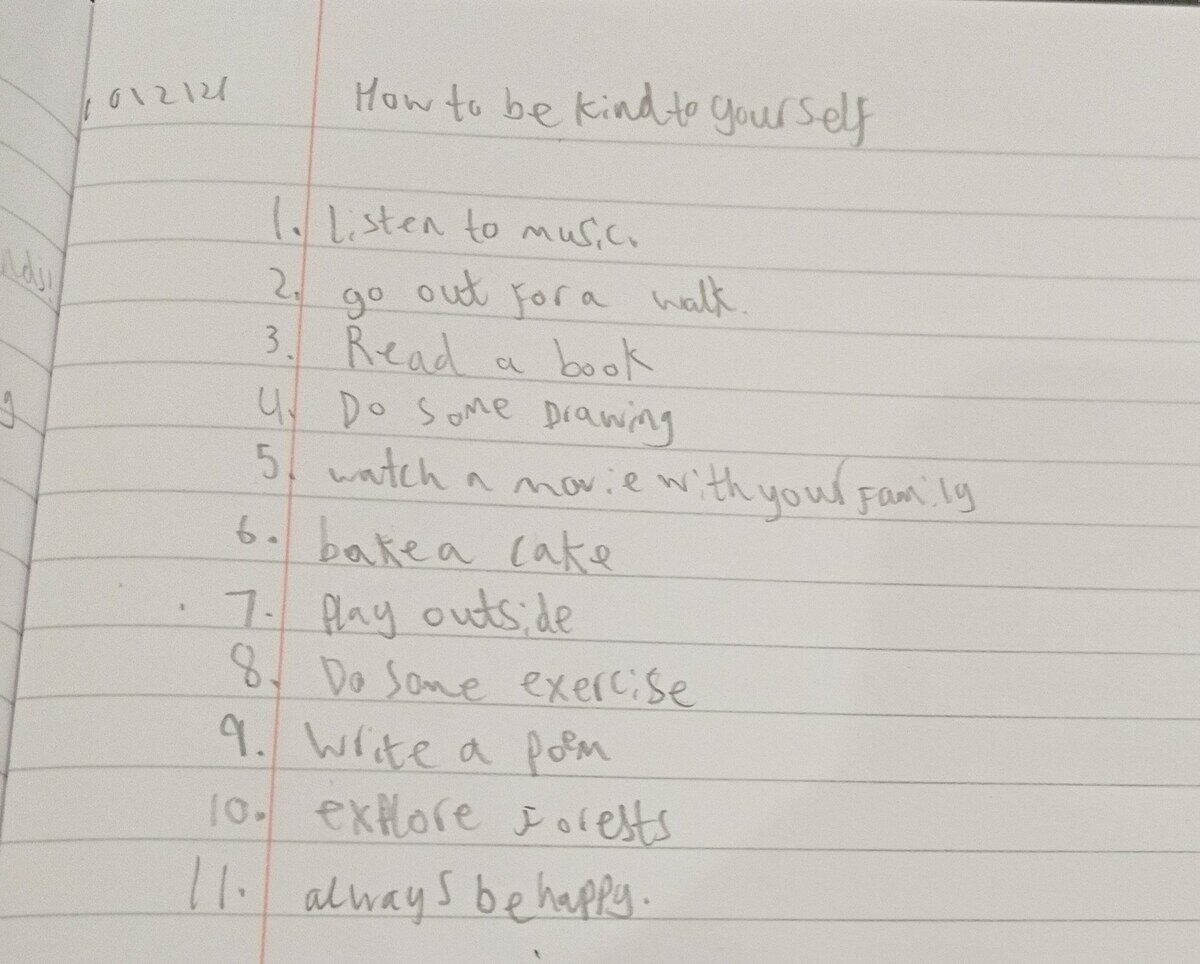 10\2\21 How to be kind to yourself
1. listen to music.
2. go out for a walk.
3. Read a book
4. Do some Drawing
5. watch a movie with your family
6. bake a cake
7. play outside
8. Do some exercise
9. Write a poem
10. explore forests
11. always be happy.